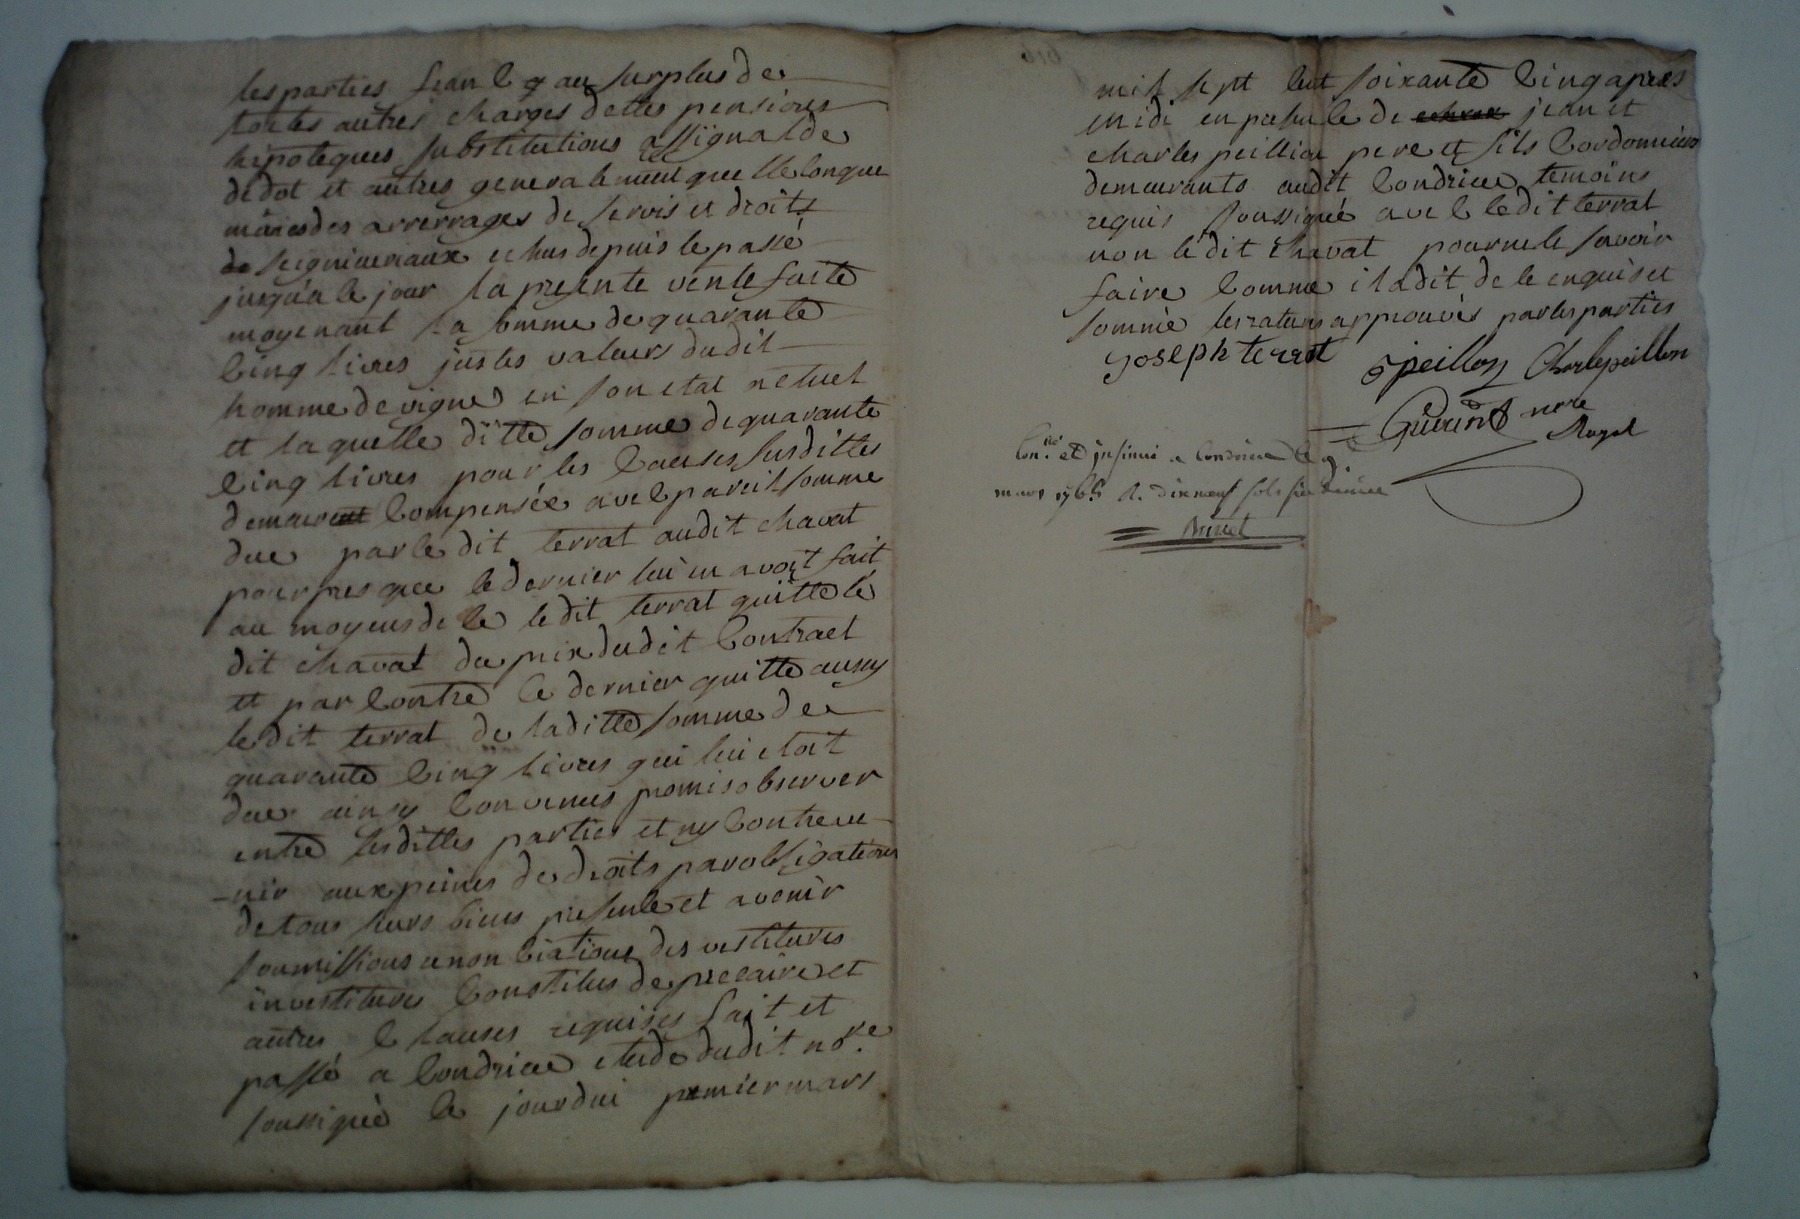 les parties franc q au surplus de
toutes autres charges dettes pensions
hipoteques substitutions assignat de
de dot et autres generalement quelleconque
mâresdes arrerrages de servis et droits
seigneuriaux echus depuis le passé
jusqu'a ce jour la presente vente faite
moyenant la somme de quarante
cinq livres justes valeurs dudit
homme de vigne en son etat actuel
et laquelle ditte somme de quarante
cinq livres pour les causes susdittes
demeure compensée avec pareil somme
due par le dit terrat audit chavat
pour pres que ce dernier lui en avoit fait
au moyens de ce le dit terrat quitte le
dit chavat du prix dudit contract
et par contre ce dernier quitte aussy
le dit terrat de laditte somme de
quarante cinq livres qui lui etoit
due ainsy convenus promis observer
entre lesdittes parties et ny contreve
-nir aux peines de droits par obligations
de tous leurs biens presents et avenir
soumissions renonciations des vestitures
investitures constitus de precaire et
autres clauses requises fait et
passé a Condrieu etude dudit nore
soussigné le jourdui premier mars
mil sept cent soixante cinq apres
midi en presence de jean et
charles peillion pere et fils cordonniers
demeurants audit Condrieu temoins
requis soussigné avec ledit terrat
non ledit chavat pour ne le savoir
faire comme il a dit de ce enquis et
sommé les ratures approuvés par les parties
joseph terrat
peillon Charle peillon
Guerin nore
Royal
Con.lé et insinué a Condrieu le 9
mars 1765 R. dixneuf sols six deniers